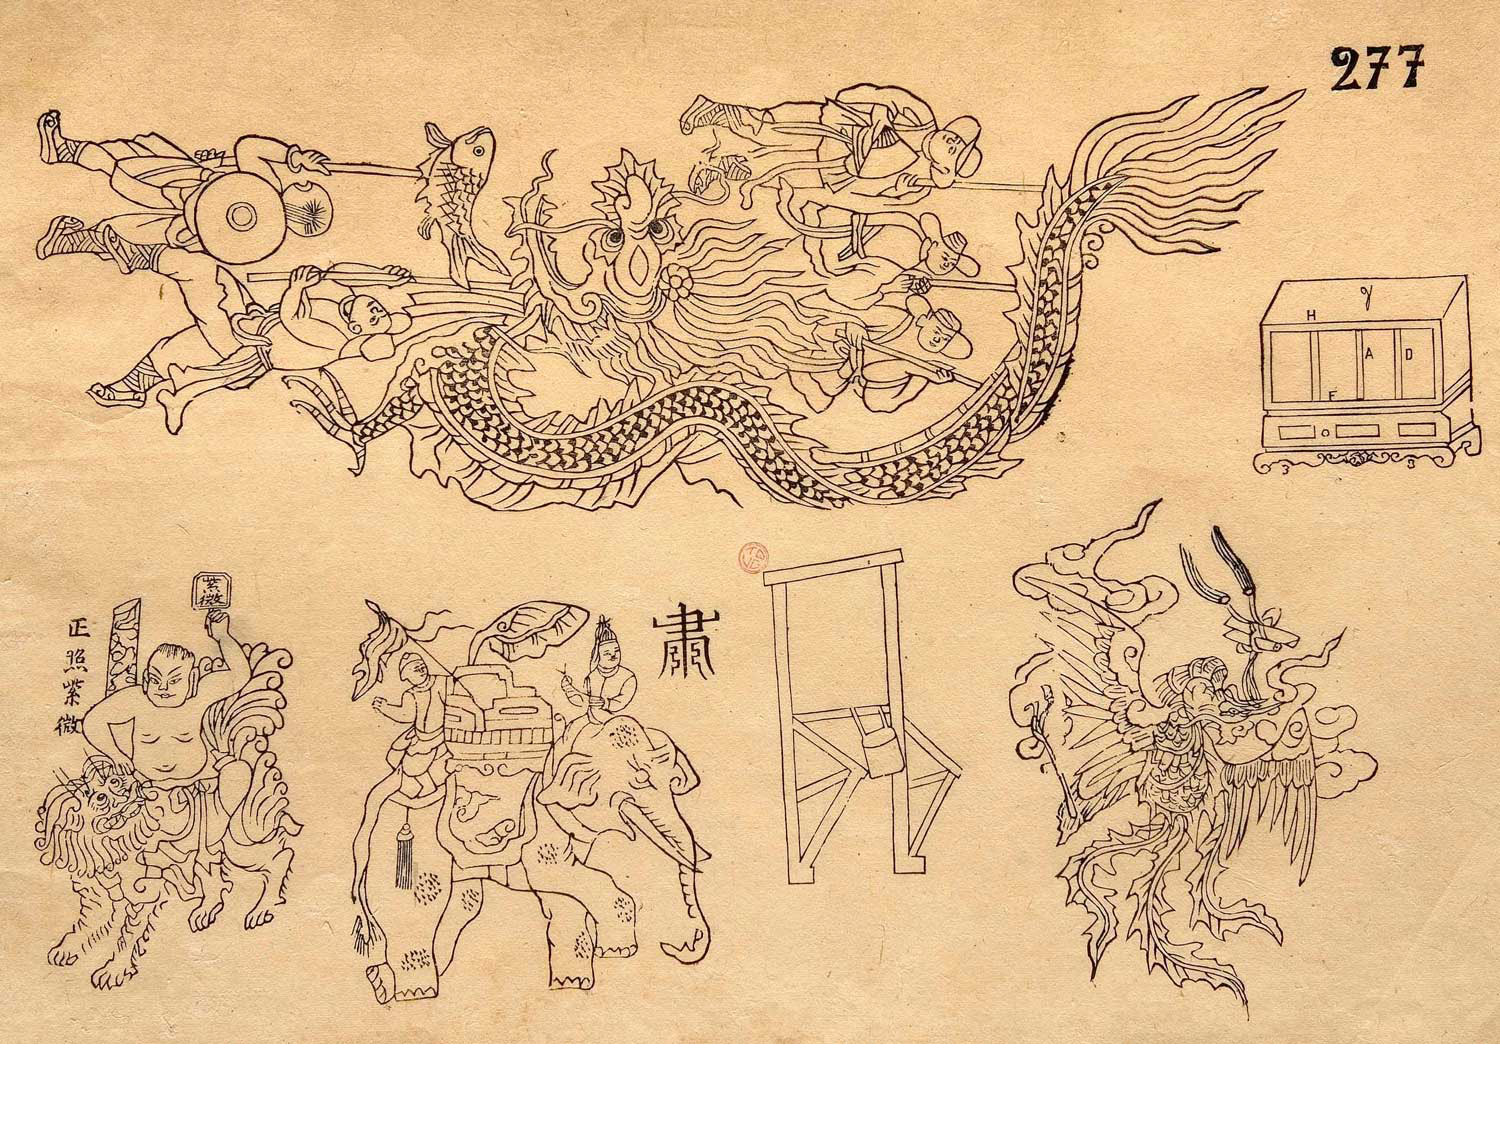 277
H
A
D
F
紫微
正照紫微
肅